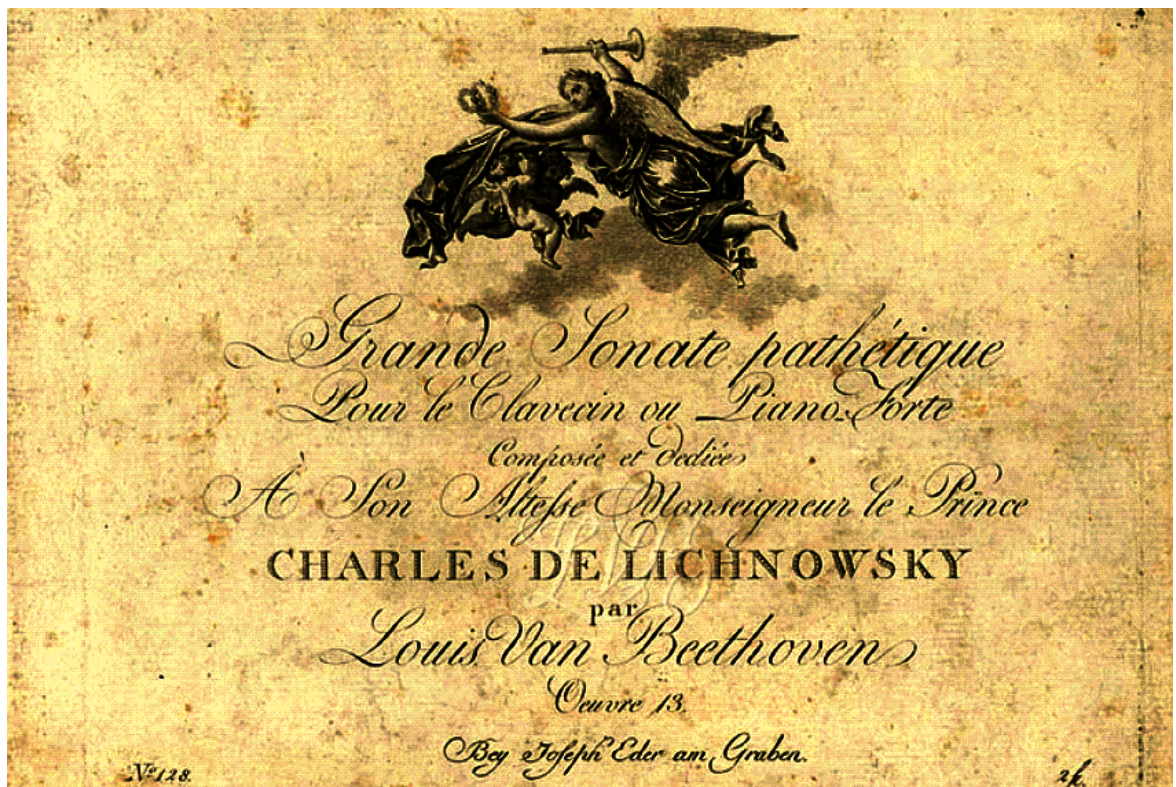 Grande Sonate pathétique
Pour le Clavecin ou Piano=Forte
Composée et dediée
À Son Altesse Monseigneur le Prince
CHARLES DE LICHNOWSKY
par
Louis Van Beethoven
Oeuvre 13.
Bey Joseph Eder am Graben.
No 128.